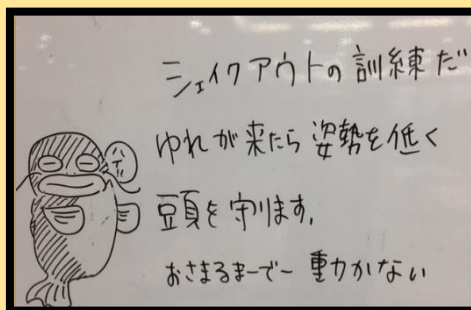 シェイクアウトの訓練だ
ハイ!!
ゆれが来たら姿勢を低く
頭を守ります。
おさまるまーでー動かない